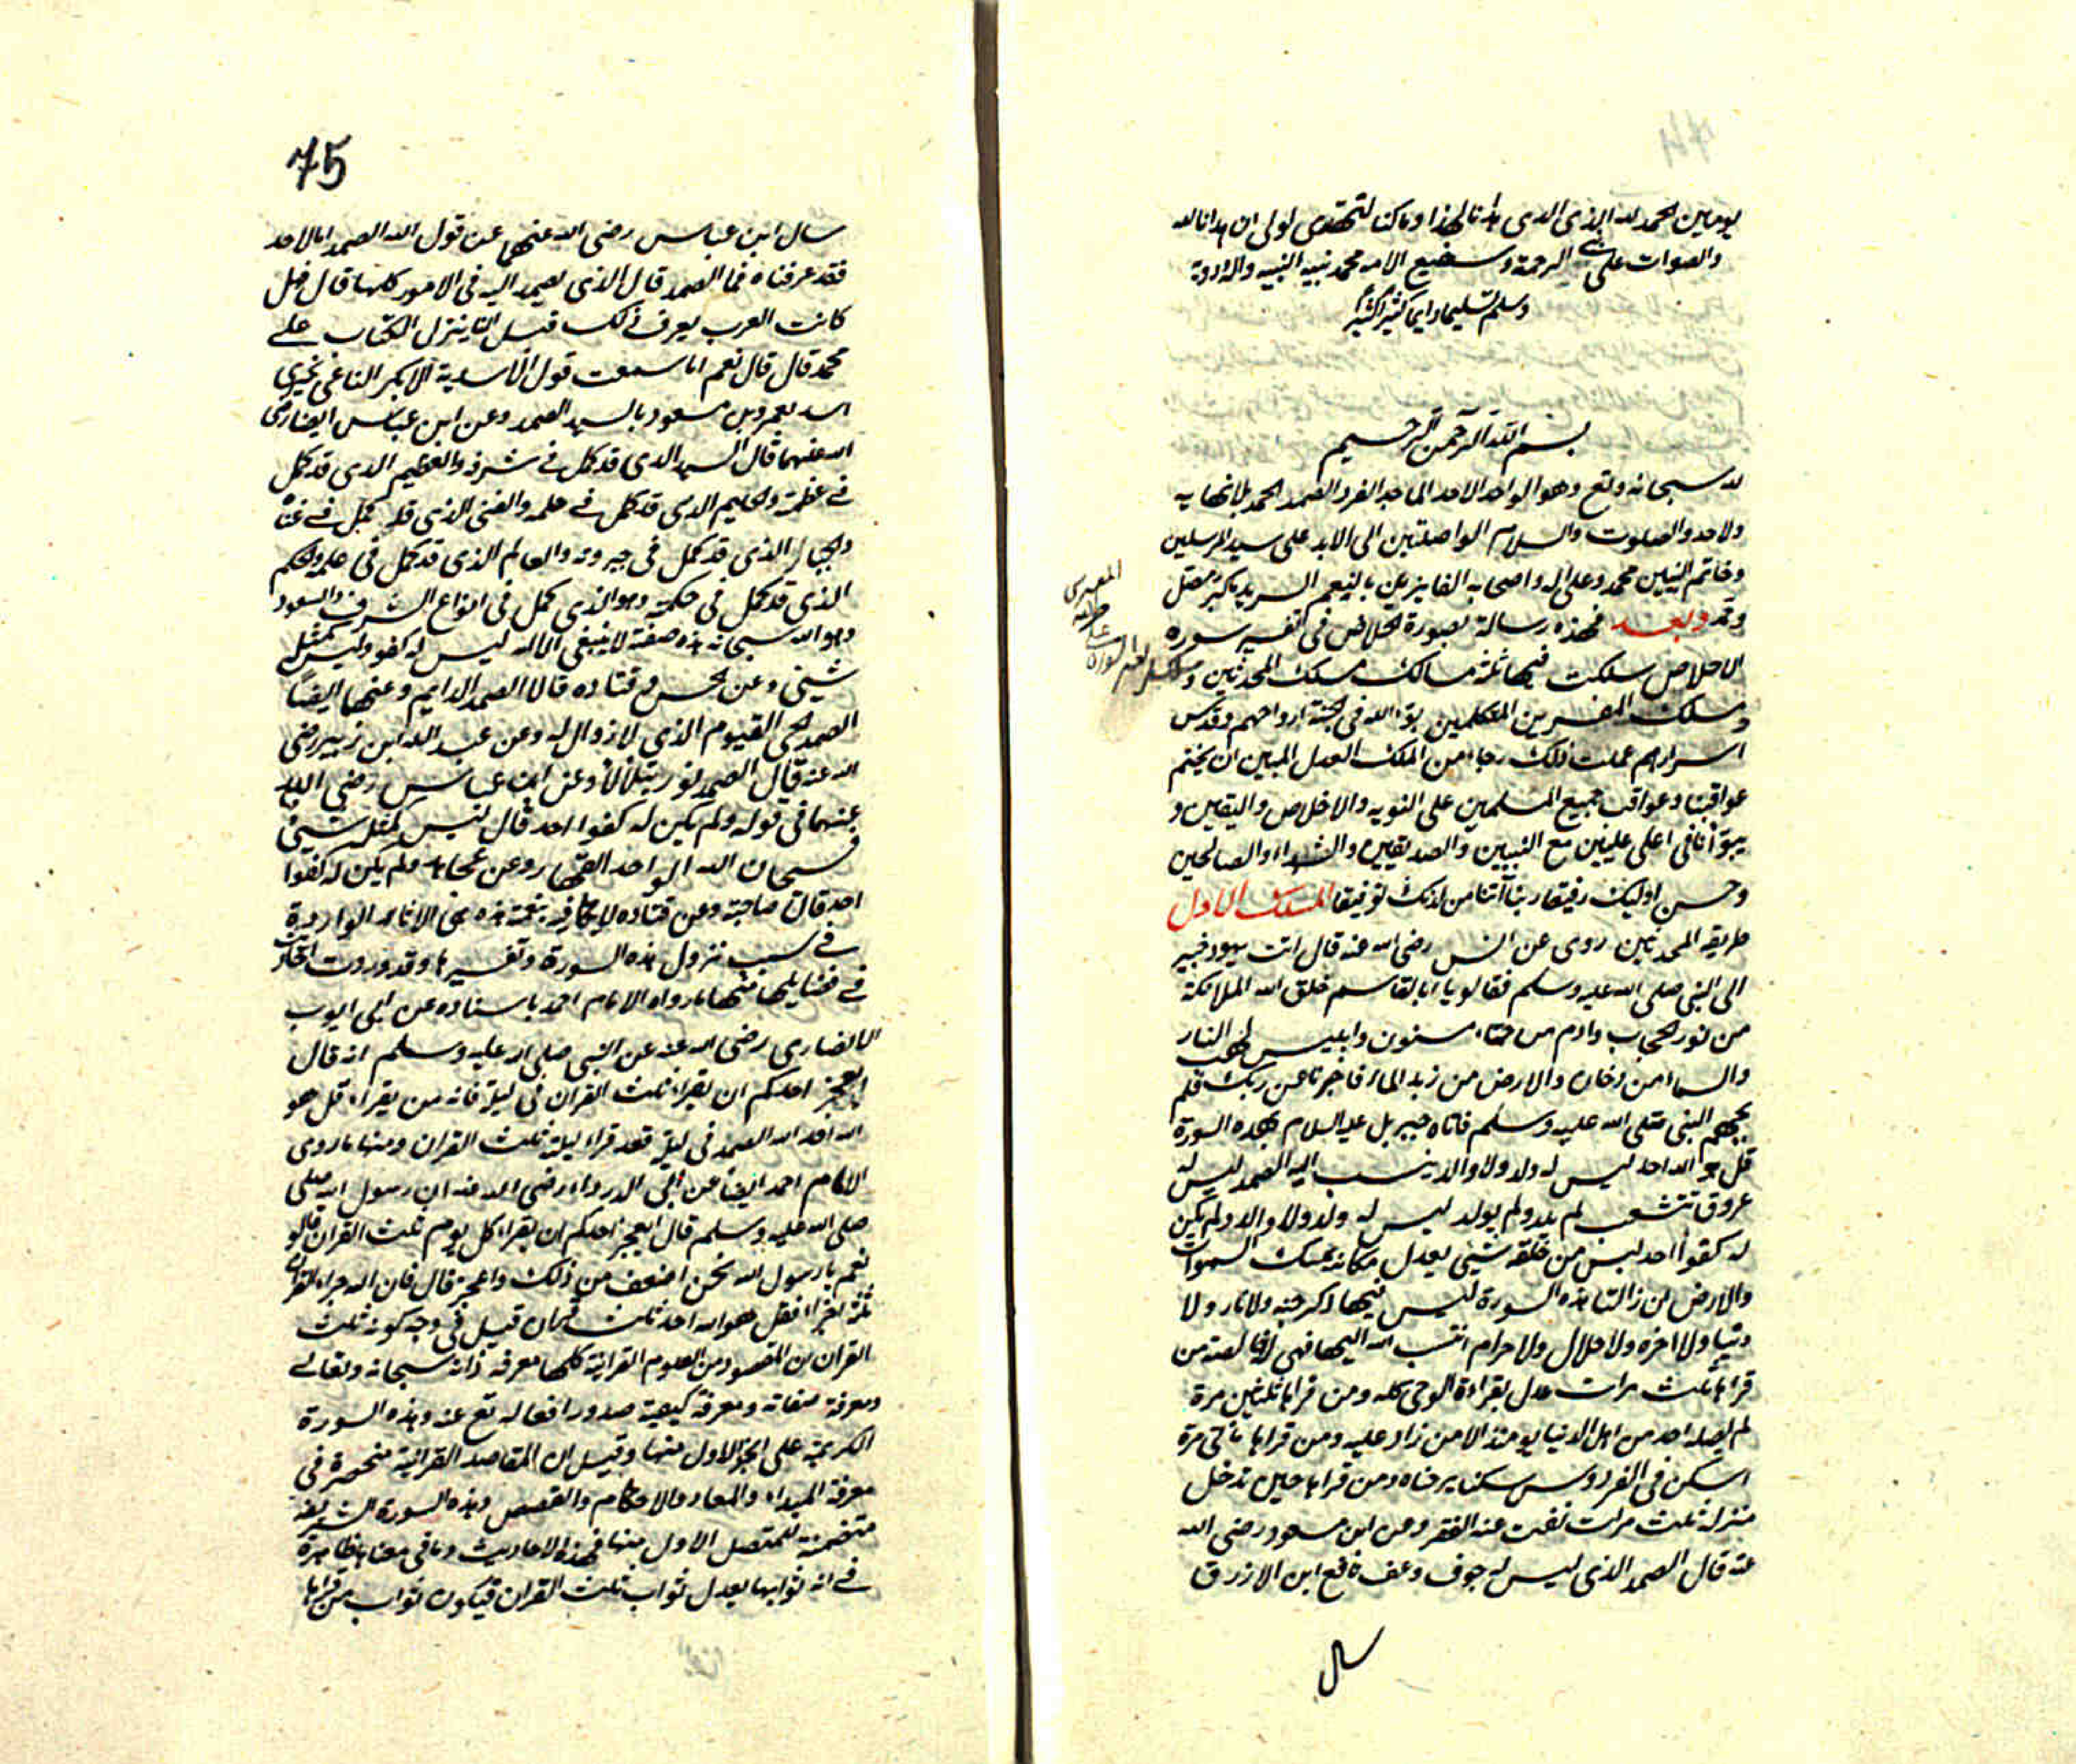 يومين الحمد لله الذى الدى هدانا لهذا وما كنا لنهتدى لولى ان هدانا الله
والصلوات على نبى الرحمة وشفيع الامه محمد نبيه النبيه واله
وسلم تسليما دايما كثيرا كثيرا
بسم الله الرحمن الرحيم
لله سبحانه وتع وهو الواحد الاحد الماجد الفرد الصمد الحمد بلانهايه
ولاحد والصلوت والسلام الواصلتين الى الابد على سيد المرسلين
وخاتم النبيين محمد وعلى اله واصحابه الفايزين بالنعم السرمد
وبعد فهذه رسالة بصورة الخلاص فى تفسير سورة
الاخلاص سلكت فيها ثلثة مسالك مسلك المحدثين و
ومسلك المفسرين المتكلمين بوء الله فى الجنة ارواحهم وقدس
اسرارهم عملت ذلك رجاء من الملك العدل المبين ان يختم
عواقبنا وعواقب جميع المسلمين على التوبه والاخلاص واليقين و
يبوأنا فى اعلى عليين مع النبيين والصديقين والشهداء والصالحين
وحسن اوليك رفيقا ربنا آتنا من لدنك توفيقا المسلك الاول
طريقه المحدثين روى عن انس رضى الله عنه قال اتت يهود خيبر
الى النبى صلى الله عليه وسلم فقالو يا ابا القاسم خلق الله الملائكة
من نور الحجاب وادم من حماء مسنون وابليس لهب النار
والسماء من دخان والارض من زبد الماء فاخبرنا عن ربك فلم
يجبهم النبى صلى الله عليه وسلم فاتاه جبريل عليه السلام بهذه السورة
قل هو الله احد ليس له ولد ولا والد ينسب اليه الصمد ليس له
عروق تتشعب لم يلد ولم يولد ليس له ولد ولا والد ولم يكن
له كفوا احد ليس من خلقه شيئى يعدل مكانه يمسك السموات
والارض ان زالتا هذه السورة ليس فيها ذكر جنه ولا نار ولا
دنيا ولا اخره ولا حلال ولا حرام انتسب الله اليها فهى له خالصة من
قراها ثلث مرات عدل بقراءة الوحى كله ومن قراها ثلثين مرة
لم يفضله احد من اهل الدنيا يومئذ الا من زاد عليه ومن قراها مائتى مرة
اسكن فى الفردوس سكنا يرضاه ومن قراها حين تدخل
منزله ثلث مرات نفت عنه الفقر وعن ابن مسعود رضى الله
عنه قال الصمد الذى ليس له جوف وعنه نافع ابن الازرق
سال
75
سال ابن عباس رضى الله عنهما عن قول الله الصمد اما الاحد
فقد عرفناه فما الصمد قال الذى يصمد اليه فى الامور كلها قال فهل
كانت العرب يعرف ذلك قبل ان ينزل الكتاب على
محمد قال قال نعم اما سمعت قول الاسدية الا بكر الناعى بخيرى
اسد بعمرو بن مسعود بالسيد الصمد وعن ابن عباس ايضا رضى
الله عنهما قال السيد الدى قد كمل فى شرفه والعظيم الدى قد كمل
فى عظمته والحليم الدى قد كمل فى حلمه والغنى الذى قد كمل فى غناه
والجبار الذى قد كمل فى جبروته والعالم الذى قد كمل فى علمه والحكم
الذى قد كمل فى حكمته وهو الذى كمل فى انواع الشرف والسودد
وهو الله سبحانه هذه صفته لا ينبغى الا له ليس له كفو وليس كمثله
شيئى وعن الحسن وقتاده قالا الصمد الدايم وعنهما ايضا
الصمد الحى القيوم الذى لا زوال له وعن عبد الله ابن زبير رضى
الله عنه قال الصمد نور يتلالأ وعن ابن عباس رضى الله
عنهما فى قوله ولم يكن له كفوا احد قال ليس كمثله شيئى
فسبحان الله الواحد القهار وعن مجاهد ولم يكن له كفوا
احد قال صاحبة وعن قتاده لا يكافيه هذه هى الاثار الواردة
فى سبب نزول هذه السورة وتفسيرها وقد وردت احاديث
فى فضايلها منها ما رواه الامام احمد باسناده عن ابى ايوب
الانصارى رضى الله عنه عن النبى صلى الله عليه وسلم انه قال
ايعجز احدكم ان يقراء ثلث القران فى ليلة فانه من يقراء قل هو
الله احد الله الصمد فى ليلة فقد قراء ليلة ثلث القران ومنها ما روى
الامام احمد ايضا عن ابى الدرداء رضى الله عنه ان رسول الله صلى
صلى الله عليه وسلم قال ايعجز احدكم ان يقراء كل يوم ثلث القران قالو
نعم يا رسول الله نحن اضعف من ذلك واعجز قال فان الله جزاء القران
ثلثة اجزاء فقل هو الله احد ثلث قران قيل فى وجه كونه ثلث
القران ان المقصود من العلوم القرانية كلها معرفة ذاته سبحانه وتعالى
ومعرفة صفاته ومعرفة كيفية صدور افعاله تع عنه وهذه السورة
الكريمة على الجزء الاول منها وقيل ان المقاصد القرانية منحصرة فى
معرفة المبداء والمعاد والاحكام والقصص وهذه السورة الشريفة
متضمنة للمقصد الاول منها فهذه الاحاديث وما فى معناها ظاهرة
فى ان ثوابها يعدل ثواب ثلث القران فيكون ثواب من قراها